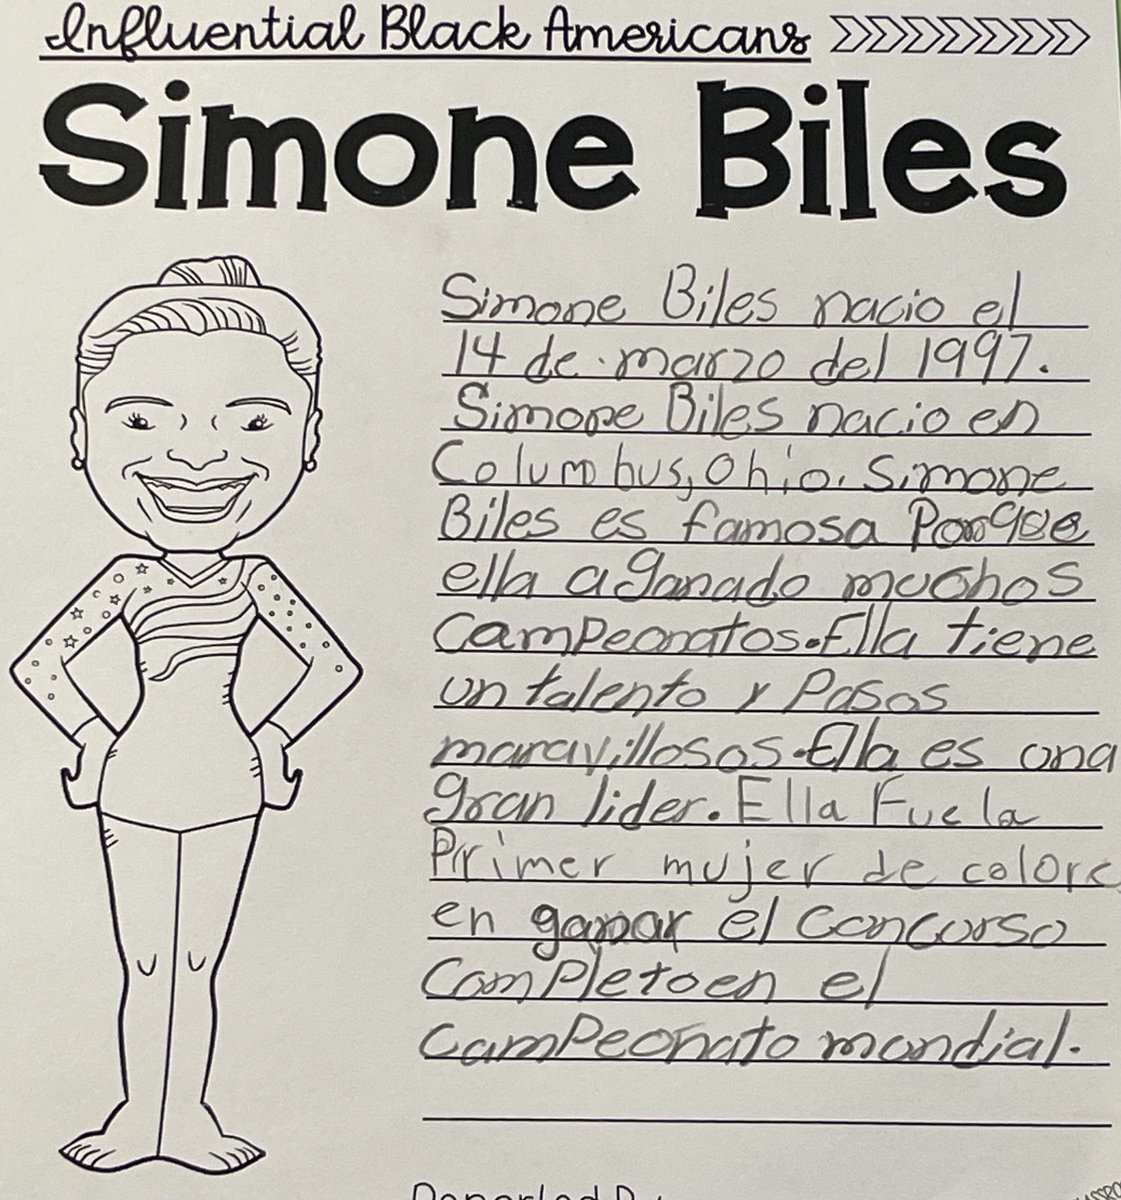 Influential Black Americans
Simone Biles
Simone Biles nacio el
14 de marzo del 1997.
Simone Biles nacio en
Columbus, Ohio. Simone
Biles es famosa Porque
ella a ganado muchos
CamPeonatos. Ella tiene
un talento y Pasos
maravillosos. Ella es una
gran lider. Ella Fue la
Primer mujer de colore
en ganar el Concurso
ComPleto en el
CamPeonato mondial.